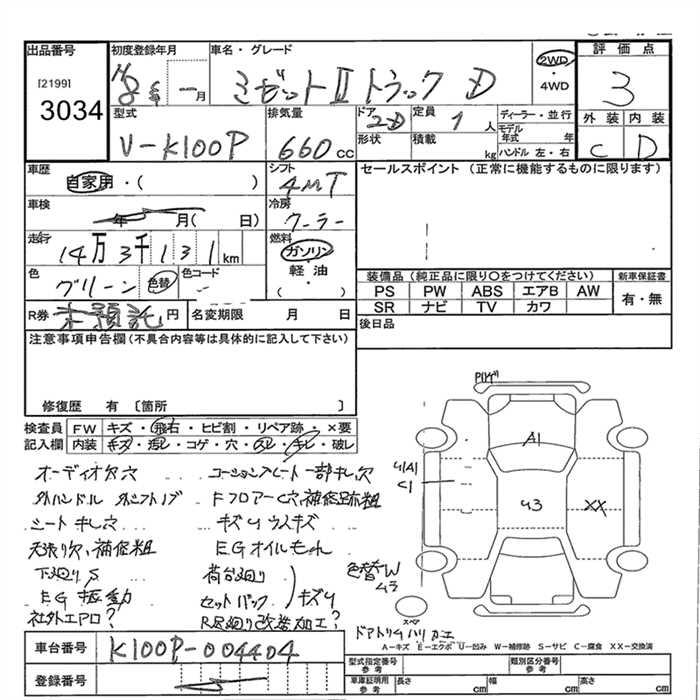 出品番号
[2199]
3034
初度登録年月
H8年 一月
車名・グレード
ミゼットⅡトラック D
2WD
・
4WD
評価点
3
外装 内装
C D
型式
V-K100P
排気量
660 cc
ドア 2D
形状
定員 1 人
積載 kg
ディーラー・並行
モデル年式 年
ハンドル 左・右
車歴
自家用・( )
シフト
4MT
セールスポイント (正常に機能するものに限ります)
車検
年 月( 日)
冷房
クーラー
走行
14万3千131km
燃料
ガソリン
・
軽油
・
( )
色
グリーン 色替
色コード
装備品(純正品に限り○をつけてください)
新車保証書
PS PW ABS エアB AW
有・無
SR ナビ TV カワ
R券 未預託 円
名変期限 月 日
後日品
注意事項申告欄(不具合内容等は具体的に記入して下さい)
修復歴 有 〔箇所 〕
検査員 FW キズ・飛石・ヒビ割・リペア跡・×要
記入欄 内装 キズ・汚レ・コゲ・穴・スレ・キレ・破レ
オーディオ欠穴
コーションプレート一部キレ欠
外ハンドル 外シフトノブ
Fフロアーく穴,補修跡粗
シートキレ穴
キズUウスキズ
天張り欠,補修粗
EGオイルもれ
下廻りS
荷台廻り
EG振動
セットバック
キズU
社外エアロ?
R足廻り改造加工?
A1
U3
XX
U1A1
C1
色替W
ムラ
スペア
A-キズ E-エクボ U-凹み W-補修跡 S-サビ C-腐食 XX-交換済
車台番号
K100P-004404
登録番号
型式指定番号
参考
類別区分番号
参考
車庫証明用
参考
長さ cm
幅 cm
高さ cm